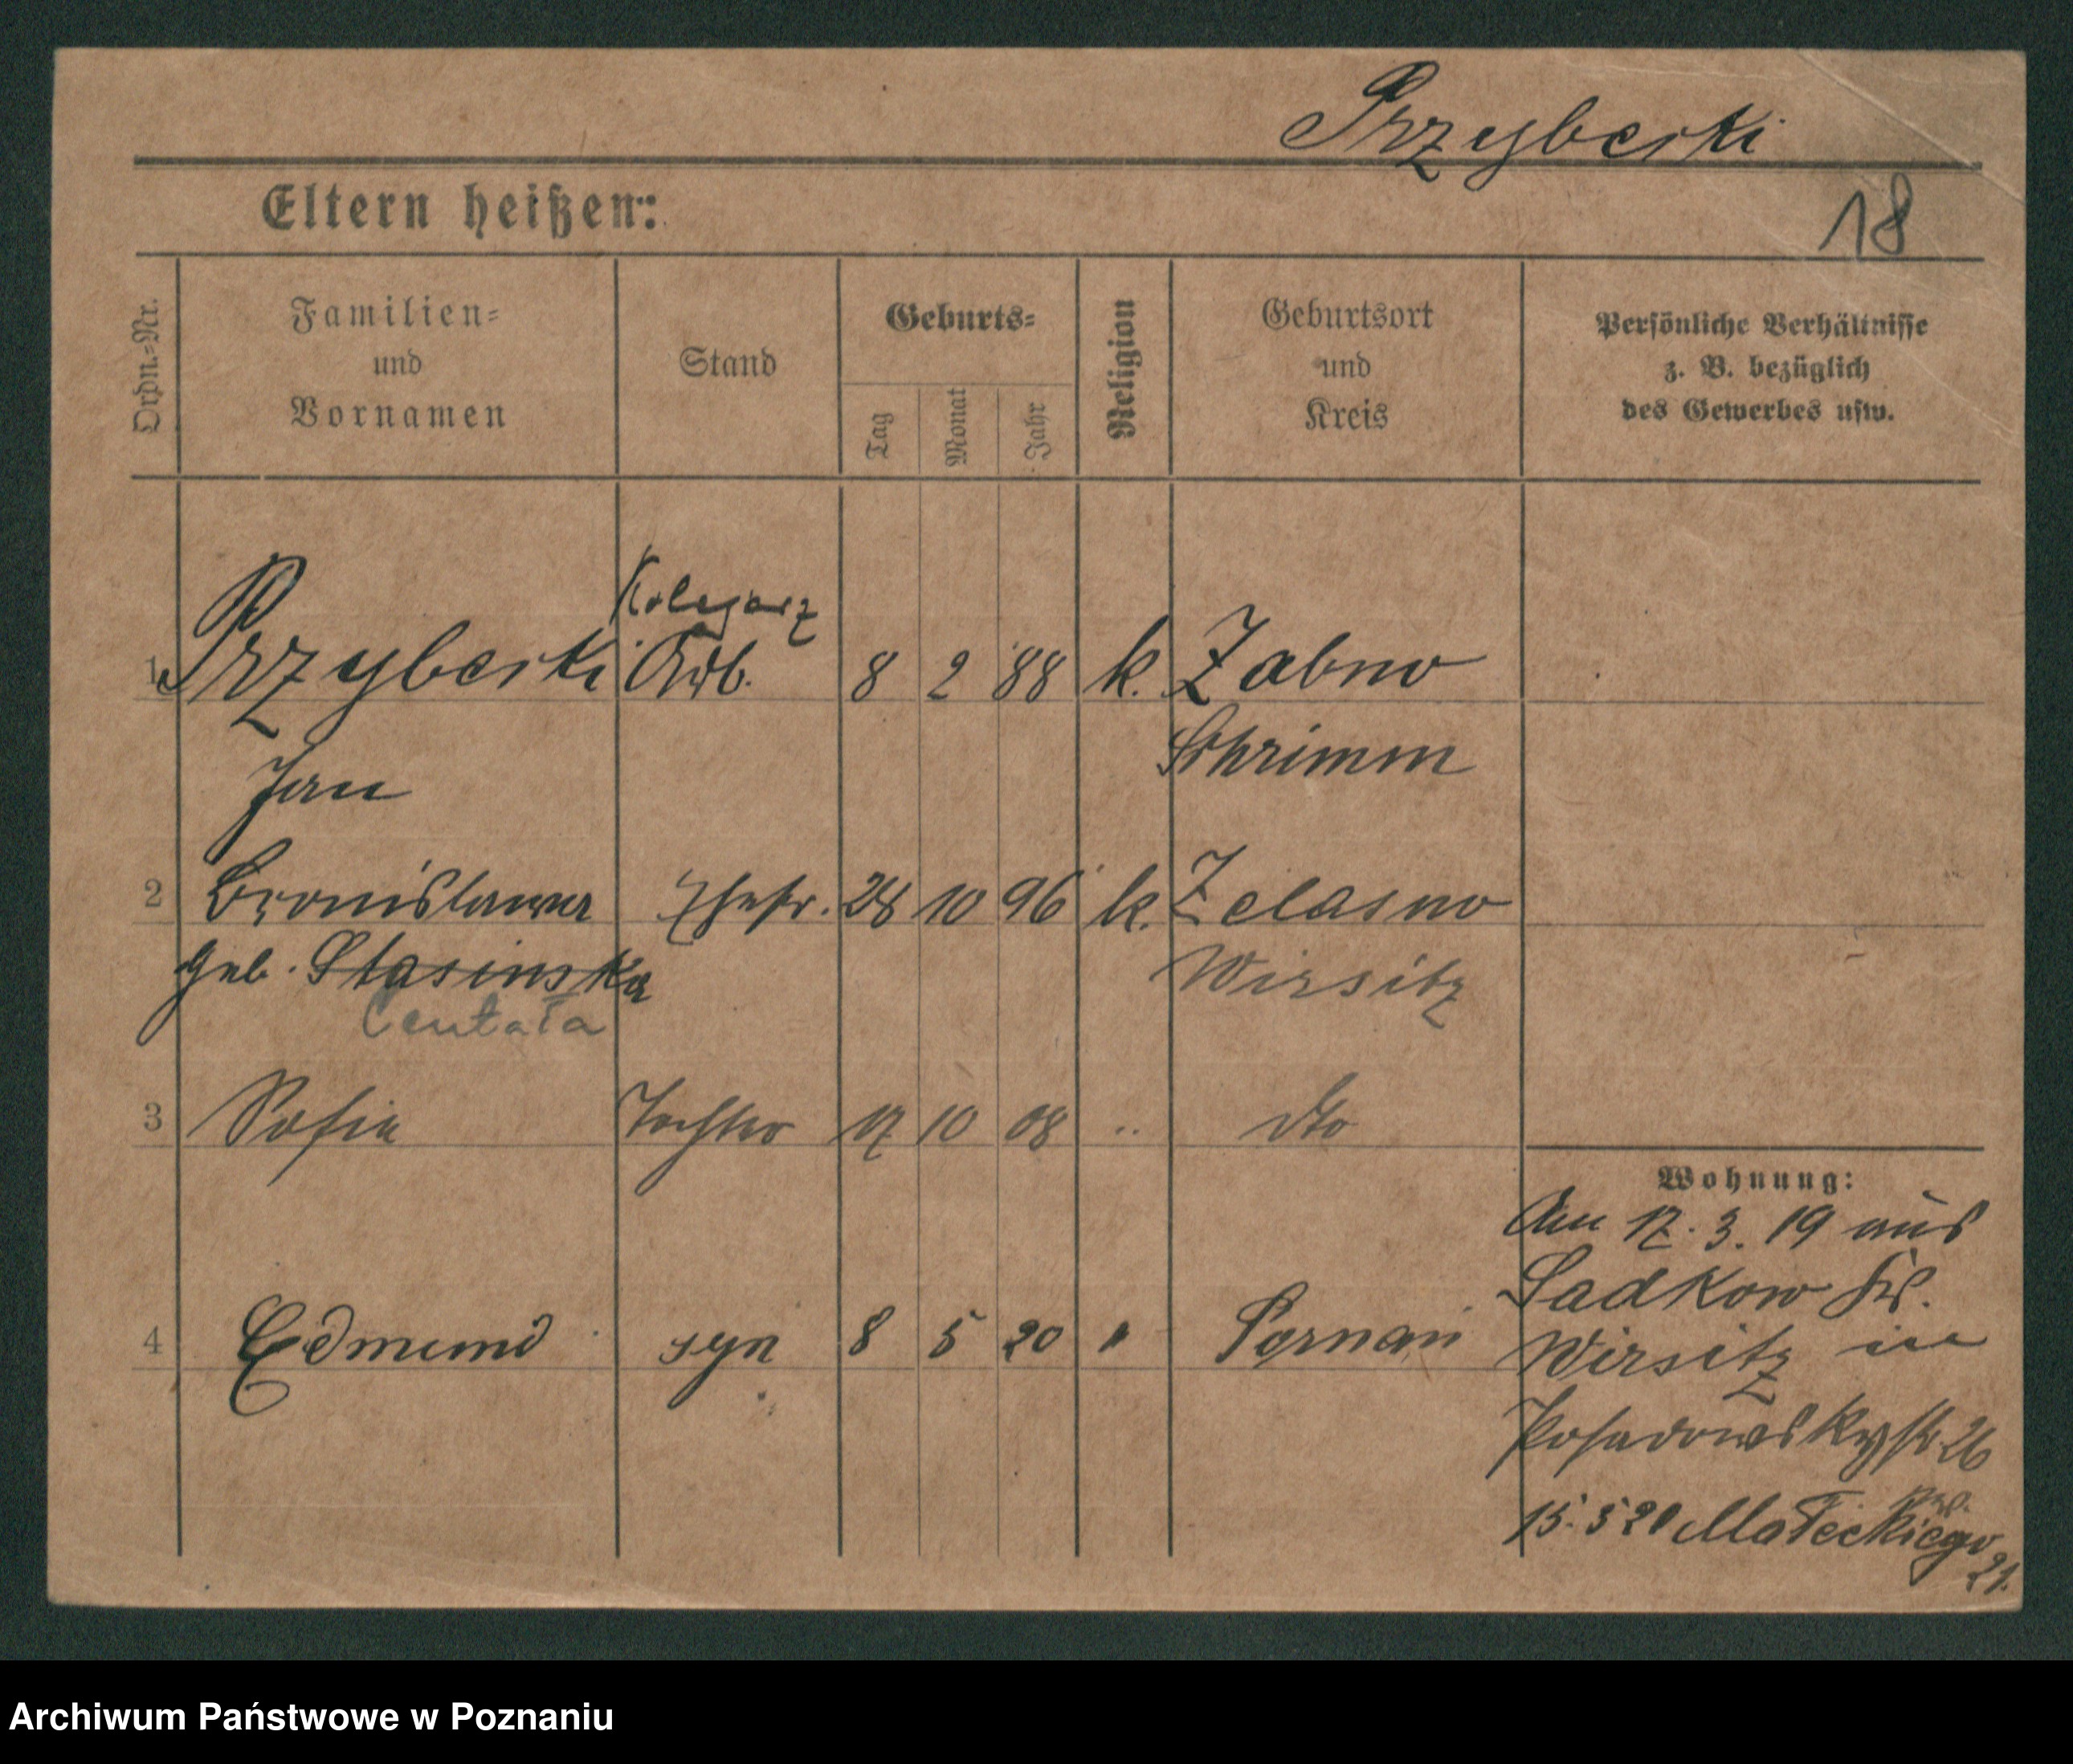 Przybecki
Eltern heißen:
18
Ordn.-Nr.
Familien-
und
Vornamen
Stand
Geburts-
Tag
Monat
Jahr
Religion
Geburtsort
und
Kreis
Persönliche Verhältnisse
z. B. bezüglich
des Gewerbes usw.
Kolejarz
1 Przybecki Arb. 8 2 88 k. Zabno
Schrimm
Jan
2 Bronislawa Ehefr. 28 10 96 k. Zelasno
geb. Stasinska Wirsitz
Centała
3 Sofia Tochter 17 10 08 " dto
Wohnung:
Am 17. 3. 19 aus
Sadkow Krs.
4 Edmund syn 8 5 20 " Poznań
Wirsitz in
Posadowskystr. 26
15. 5 20 Małeckiego
21.
Archiwum Państwowe w Poznaniu